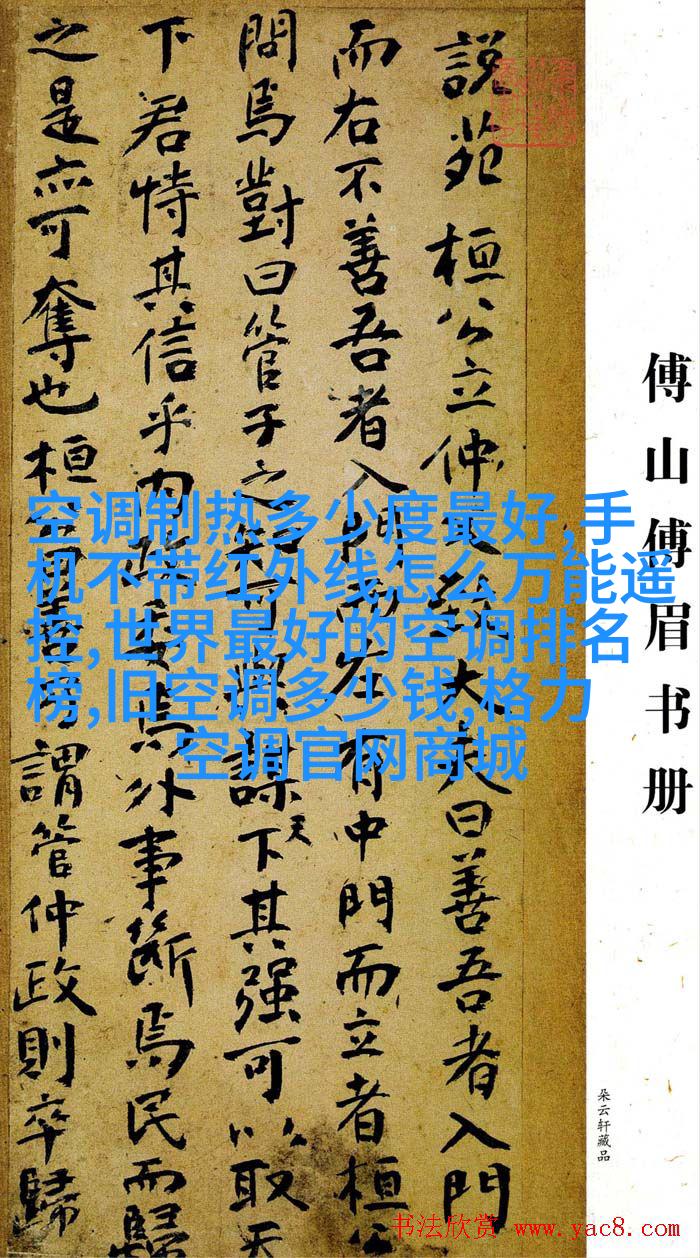 說苑 桓公立仲父致大夫曰善吾者入門
而右不善吾者入門而左有中門而立者桓公
問焉對曰管子之知可與謀天下其強可以取天
下君恃其信乎內政委焉外事斷焉民而歸
之是亦可奪也桓公曰善乃謂管仲政則卒歸
空调制热多少度最好,手
机不带红外线怎么万能遥
控,世界最好的空调排名
榜,旧空调多少钱,格力
空调官网商城
傅山傅眉书册
朵云轩藏品
书法欣赏 www.yac8.com